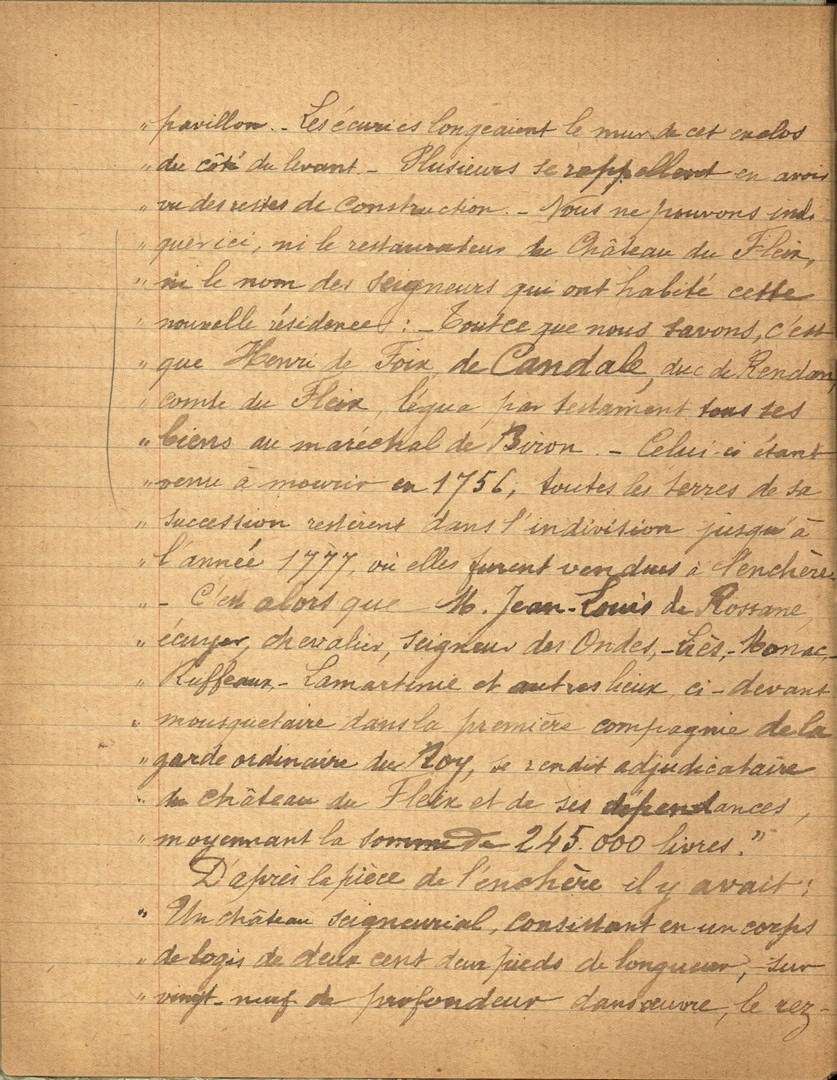 " pavillon. - Les écuries longeaient le mur de cet enclos
" du côté du levant. - Plusieurs se rappellent en avoir
" vu des restes de construction. - Nous ne pouvons indi
" quer ici, ni le restaurateur du Château du Fleix,
" ni le nom des seigneurs qui ont habité cette
" nouvelle résidence : - Tout ce que nous savons, c'est
" que Henri de Foix, de Candale, duc de Rendan,
" comte du Fleix, légua, par testament tous ses
" biens au maréchal de Biron. - Celui-ci étant
" venu à mourir en 1756, toutes les terres de sa
" succession restèrent dans l'indivision jusqu'à
" l'année 1777, où elles furent vendues à l'enchère.
" - C'est alors que M. Jean-Louis de Rossane,
" écuyer, chevalier, seigneur des Ondes, - Liès, - Monac, -
" Ruffeaux, - Lamartinie et autres lieux, ci-devant
" mousquetaire dans la première compagnie de la
" garde ordinaire du Roy, se rendit adjudicataire
" du château du Fleix et de ses dépendances,
" moyennant la somme de 245.000 livres."
D'après la pièce de l'enchère il y avait :
" Un château seigneurial, consistant en un corps
" de logis de deux cent deux pieds de longueur, sur
" vingt-neuf de profondeur dans œuvre, le rez-